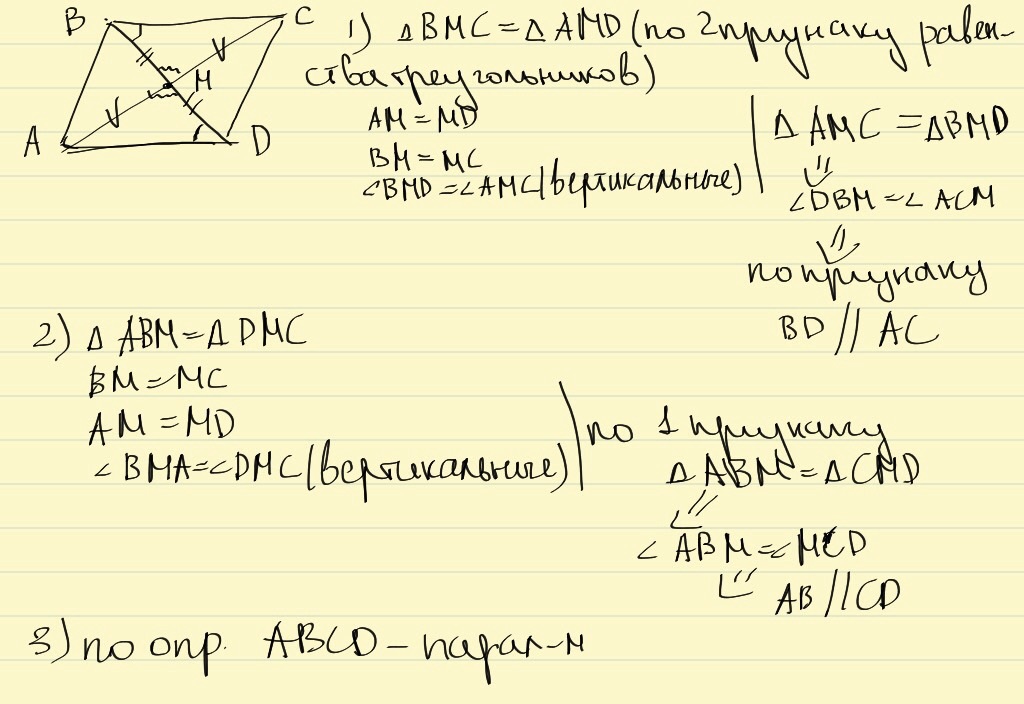 B C
M
A D
1) △BMC = △AMD (по 2 признаку равен-
ства треугольников)
AM = MD
BM = MC
∠BMD = ∠AMC (вертикальные)
△ AMC = △BMD
⇓
∠DBM = ∠ ACM
⇓
по признаку
BD // AC
2) △ ABM = △ DMC
BM = MC
AM = MD
∠ BMA = ∠DMC (вертикальные)
по 1 признаку
△ ABM = △CMD
⇓
∠ ABM = ∠ MCD
⇓
AB // CD
3) по опр. ABCD – парал-м